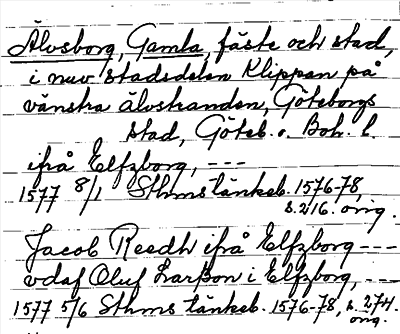 Älvsborg, Gamla, fäste och stad,
i nuv. stadsdelen Klippan på
vänstra älvstranden, Göteborgs
stad, Göteb. o. Boh. l.
ifrå Elfzborg, ---
1577 8/1 Sthms tänkeb. 1576-78,
s. 216. orig.
Jacob Reedh ifrå Elfzborg ---
vdaf Oluf Larßon i Elfzborg, ---
1577 5/6 Sthms tänkeb. 1576-78, s. 274.
orig.